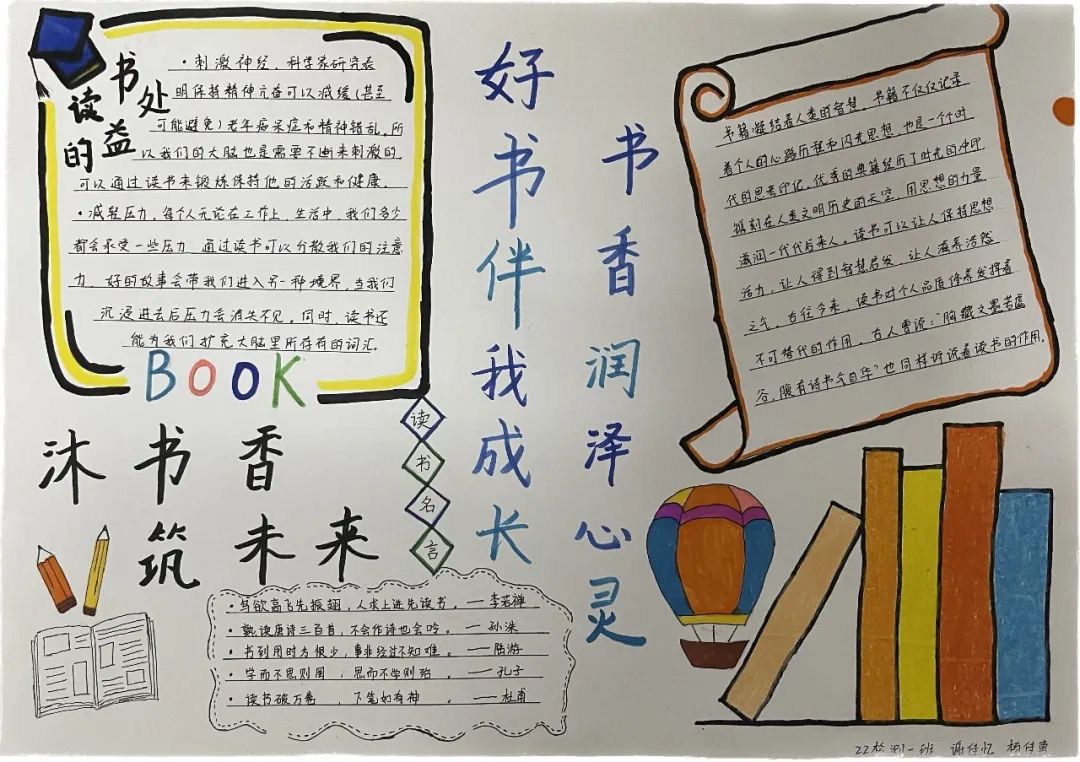 读书的益处
·刺激神经，科学家研究表
明保持精神亢奋可以减缓(甚至
可能避免)老年痴呆症和精神错乱，所
以我们的大脑也是需要不断来刺激的，
可以通过读书来锻炼保持他的活跃和健康。
·减轻压力，每个人无论在工作上，生活中，我们多少
都会承受一些压力，通过读书可以分散我们的注意
力，好的故事会带我们进入另一种境界，当我们
沉浸进去后压力会消失不见，同时，读书还
能为我们扩充大脑里所存有的词汇。
BOOK
沐书香
筑未来
好书伴我成长
书香润泽心灵
书籍凝结着人类的智慧，书籍不仅仅记录
着个人的心路历程和闪光思想，也是一个个时
代的思考印记，优秀的典籍经历了时光的冲印，
镌刻在人类文明历史的天空，用思想的力量
滋润一代代后来人，读书可以让人保持思想
活力，让人得到智慧启发，让人滋养浩然
之气，古往今来，读书对个人品质修养发挥着
不可替代的作用，古人曾说："胸藏文墨若虚
谷，腹有诗书气自华"也同样诉说着读书的作用。
读书名言
·鸟欲高飞先振翅，人求上进先读书。——李若禅
·熟读唐诗三百首，不会作诗也会吟。—孙洙
·书到用时方恨少，事非经过不知难。—陆游
·学而不思则罔，思而不学则殆。—孔子
·读书破万卷，下笔如有神。—杜甫
22检测一班 谢佳忆